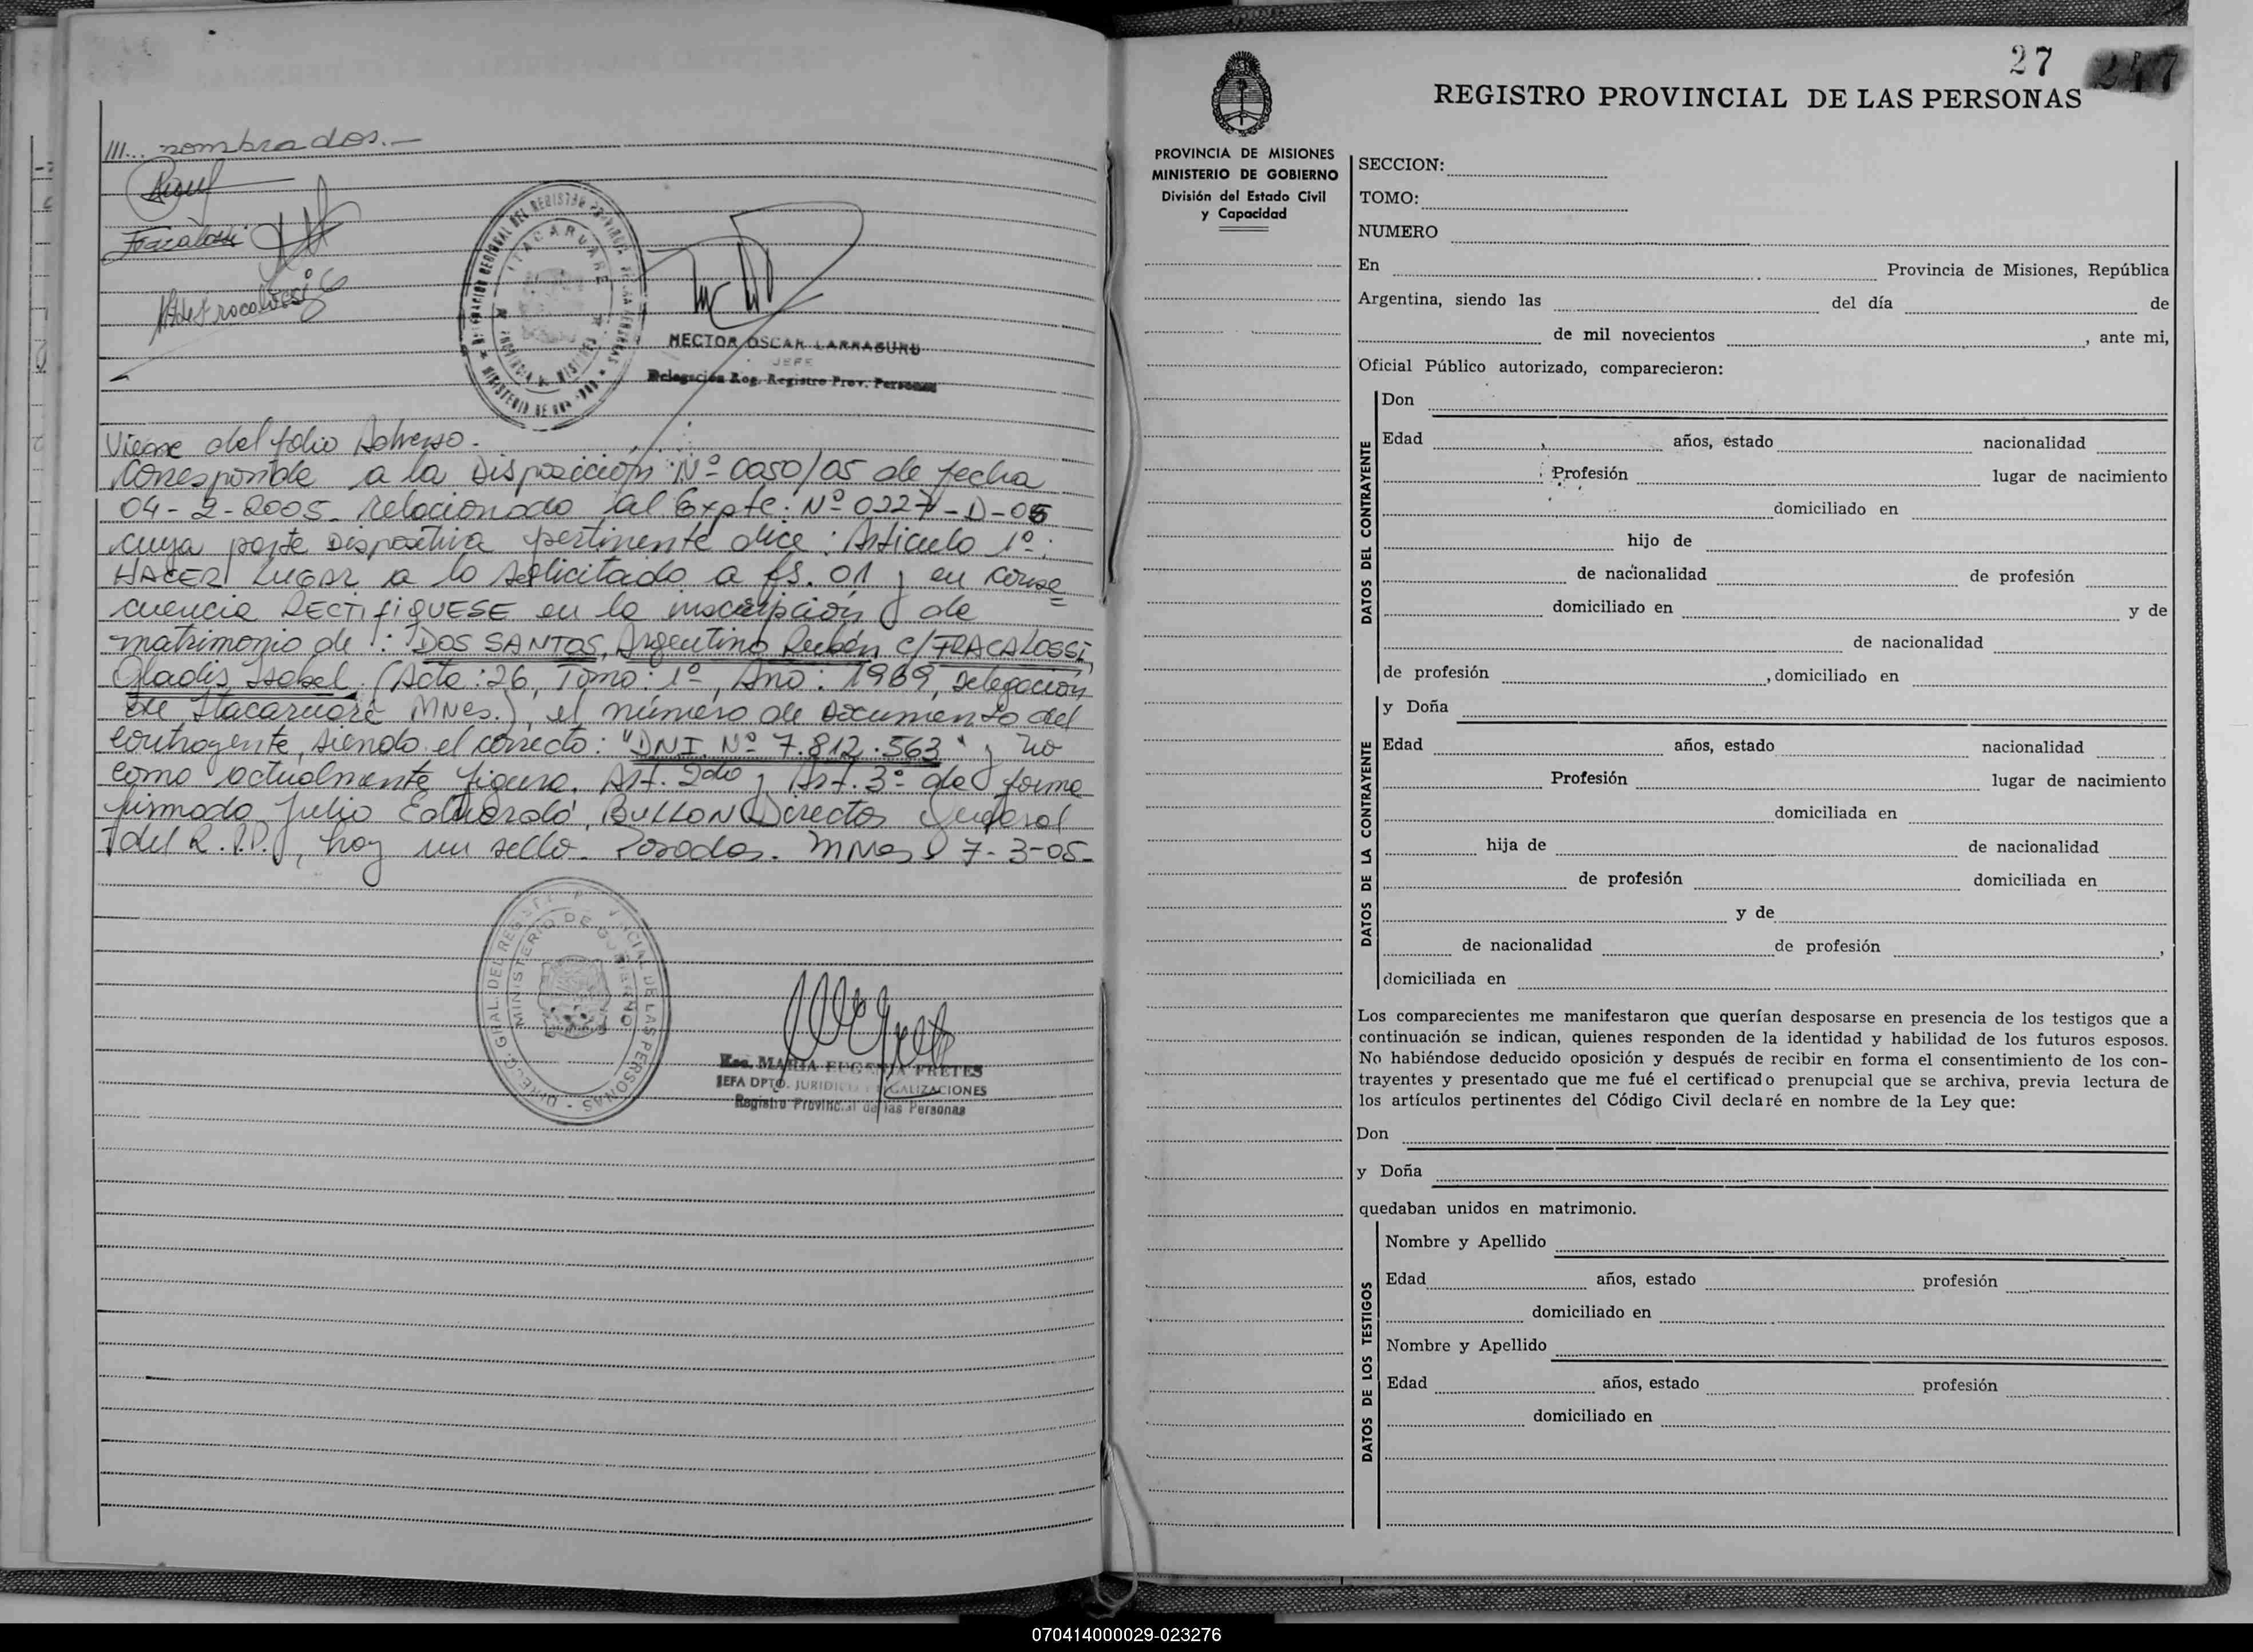 ///... nombrados.-
Fracalossi
DELEGACION REGIONAL DEL REGISTRO PROVINCIAL DE LAS PERSONAS
ITACARUARE
PROVINCIA DE MISIONES
MINISTERIO DE
HECTOR OSCAR LARRABURU
JEFE
Delegación Reg. Registro Prov. Personas
Viene del folio
Corresponde a la Disposición Nº 0050/05 de fecha
04-2-2005. relacionado al Expte. Nº 0227-D-05
cuya parte Dispositiva pertinente dice: Articulo 1º:
HACER LUGAR a lo solicitado a fs. 01 y en conse
cuencia RECTIFIQUESE en la inscripción de
matrimonio de : DOS SANTOS, Argentino Rubén c/FRACALOSSI,
Gladis Isabel. (Acta: 26, Tomo: 1º, Año: 1969, Delegación
de Itacaruaré Mnes.), el número de Documento del
contrayente, siendo el correcto: "DNI. Nº 7.812.563" y no
como actualmente figura. Art. 2do y Art. 3º de forma
firmado Julio Eduardo, BULLON Director General
del R.P.P., hay un sello. Posadas. Mnes 7-3-05-
DIREC. GRAL. DEL REGISTRO PROVINCIAL DE LAS PERSONAS
MINISTERIO DE GOBIERNO
Esc. MARIA EUGENIA FRETES
JEFA DPTO. JURIDICO LEGALIZACIONES
Registro Provincial de las Personas
27
REGISTRO PROVINCIAL DE LAS PERSONAS
PROVINCIA DE MISIONES
MINISTERIO DE GOBIERNO
División del Estado Civil
y Capacidad
SECCION:
TOMO:
NUMERO
En Provincia de Misiones, República
Argentina, siendo las del día de
de mil novecientos , ante mi,
Oficial Público autorizado, comparecieron:
DATOS DEL CONTRAYENTE
Don
Edad años, estado nacionalidad
Profesión lugar de nacimiento
domiciliado en
hijo de
de nacionalidad de profesión
domiciliado en y de
de nacionalidad
de profesión , domiciliado en
DATOS DE LA CONTRAYENTE
y Doña
Edad años, estado nacionalidad
Profesión lugar de nacimiento
domiciliada en
hija de de nacionalidad
de profesión domiciliada en
y de
de nacionalidad de profesión ,
domiciliada en
Los comparecientes me manifestaron que querían desposarse en presencia de los testigos que a
continuación se indican, quienes responden de la identidad y habilidad de los futuros esposos.
No habiéndose deducido oposición y después de recibir en forma el consentimiento de los con-
trayentes y presentado que me fué el certificado prenupcial que se archiva, previa lectura de
los artículos pertinentes del Código Civil declaré en nombre de la Ley que:
Don
y Doña
quedaban unidos en matrimonio.
DATOS DE LOS TESTIGOS
Nombre y Apellido
Edad años, estado profesión
domiciliado en
Nombre y Apellido
Edad años, estado profesión
domiciliado en
070414000029-023276